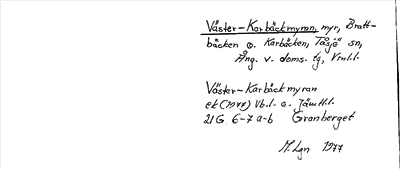 Väster-Karbäckmyran, myr, Bratt-
bäcken o. Karbäcken, Tåsjö sn,
Ång. v. doms. tg, Vrnl.l.
Väster-Karbäckmyran
ek (1971) Vb.l. o. Jämtl.l.
21G 6-7 a-b Granberget
M. Lgn 1977